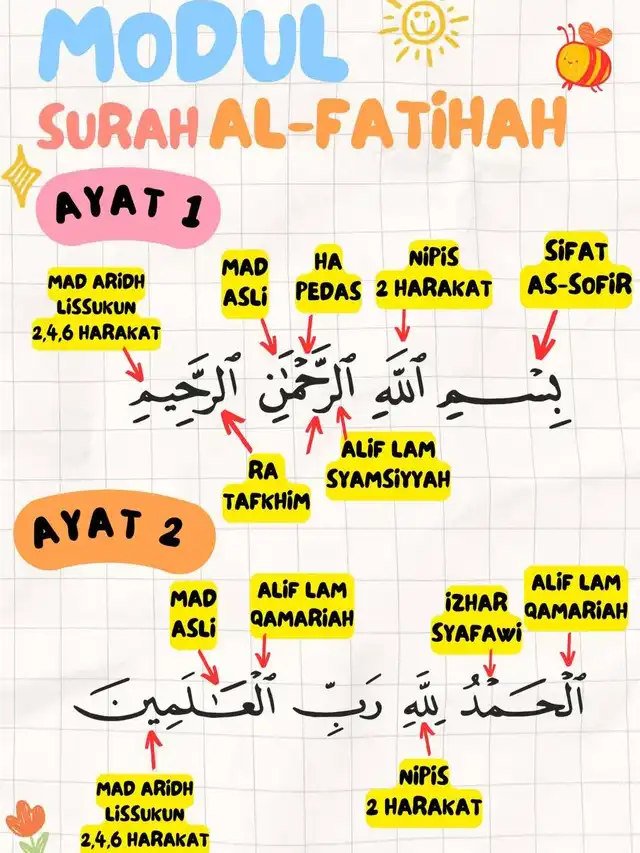 MODUL
SURAH AL-FATIHAH
AYAT 1
MAD ARIDH
LISSUKUN
2,4,6 HARAKAT
MAD
ASLI
HA
PEDAS
NIPIS
2 HARAKAT
SIFAT
AS-SOFIR
بِسْمِ ٱللَّهِ ٱلرَّحْمَٰنِ ٱلرَّحِيمِ
RA
TAFKHIM
ALIF LAM
SYAMSIYYAH
AYAT 2
MAD
ASLI
ALIF LAM
QAMARIAH
IZHAR
SYAFAWI
ALIF LAM
QAMARIAH
ٱلْحَمْدُ لِلَّهِ رَبِّ ٱلْعَٰلَمِينَ
MAD ARIDH
LISSUKUN
2,4,6 HARAKAT
NIPIS
2 HARAKAT